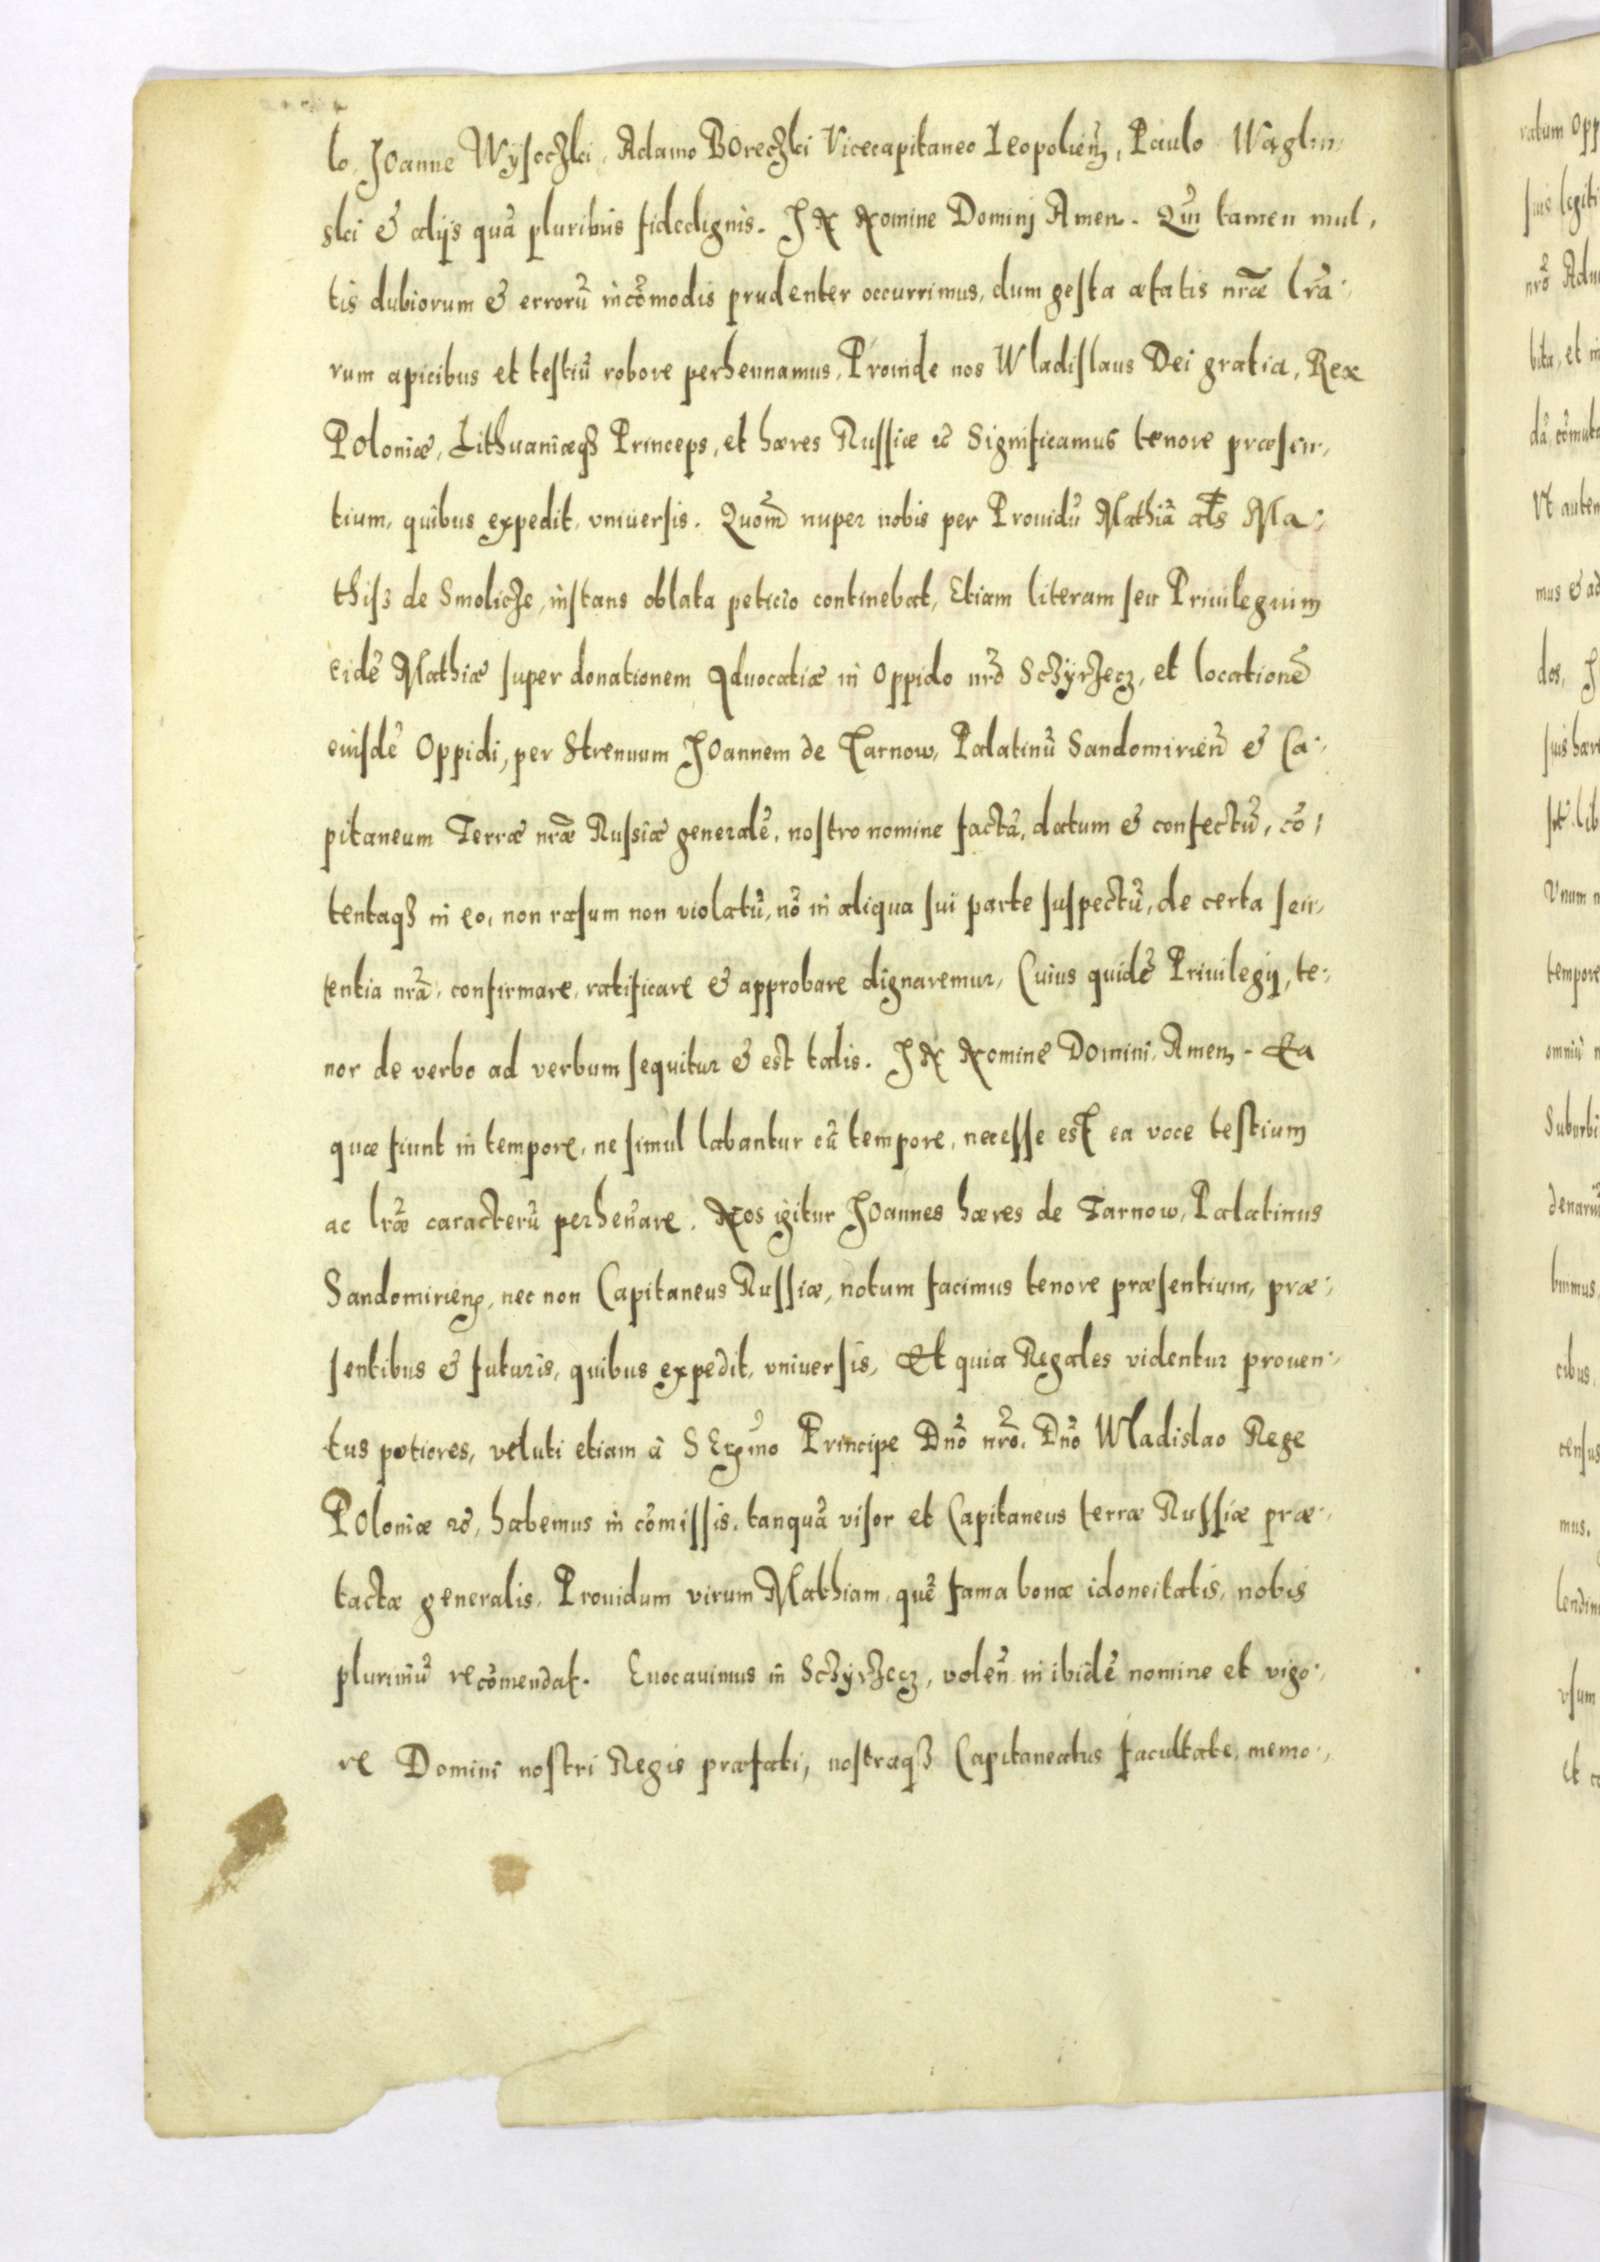 lo, Joanne Wysoczki, Adamo Boreczki Vicecapitaneo Leopolieñ, Paulo Waglin,
ski & alijs quã pluribus fidedignis. IN Nomine Domini Amen. Qui tamen mul,
tis dubiorum & errorũ incõmodis prudenter occurrimus, dum gesta ætatis nr̃æ lr̃a,
rum apicibus et testiũ robore perhennamus, Proinde nos Wladislaus Dei gratia, Rex
Poloniæ, Lithuaniæq3 Princeps, et hæres Russiæ &c Significamus tenore præsen,
tium, quibus expedit, vniuersis. Quom̃ nuper nobis per Prouidũ Mathiã als Ma:
thiss de Smolicze, instans oblata peticio continebat, Etiam literam seu Priuilegium
eidẽ Mathiæ super donationem Aduocatiæ in Oppido nr̃o Sczyrzecz, et locationẽ
eiusdẽ Oppidi, per Strenuum Joannem de Tarnow, Palatinũ Sandomirieñ & Ca:
pitaneum Terræ nr̃æ Russiæ generalẽ, nostro nomine factã, datum & confectũ, cõ:
tentaq3 in eo, non rasum non violatũ, nõ in aliqua sui parte suspectũ, de certa scien,
tentia nr̃a, confirmare, ratificare & approbare dignaremur, Cuius quidẽ Priuilegij, te:
nor de verbo ad verbum sequitur & est talis. IN Nomine Domini Amen. Ea
quæ fiunt in tempore, ne simul labantur cũ tempore, necesse est ea voce testium
ac lr̃æ caracterũ perheñare. Nos igitur Joannes hæres de Tarnow, Palatinus
Sandomirieñ, nec non Capitaneus Russiæ, notum facimus tenore præsentium, præ:
sentibus & futuris, quibus expedit, vniuersis, Et quia Regales videntur prouen:
tus potiores, veluti etiam â Serm̃o Principe Dñõ nr̃o, Dñõ Wladislao Rege
Poloniæ &c, habemus in cõmissis, tanquã visor et Capitaneus terræ Russiæ præ:
tactæ generalis, Prouidum virum Mathiam, quẽ fama bonæ idoneitatis, nobis
plurimũ recõmendat. Euocauimus in Sczyrzecz, voleñ in ibidẽ nomine et vigo:
re Domini nostri Regis præfati, nostraq3 Capitaneatus facultate, memo: